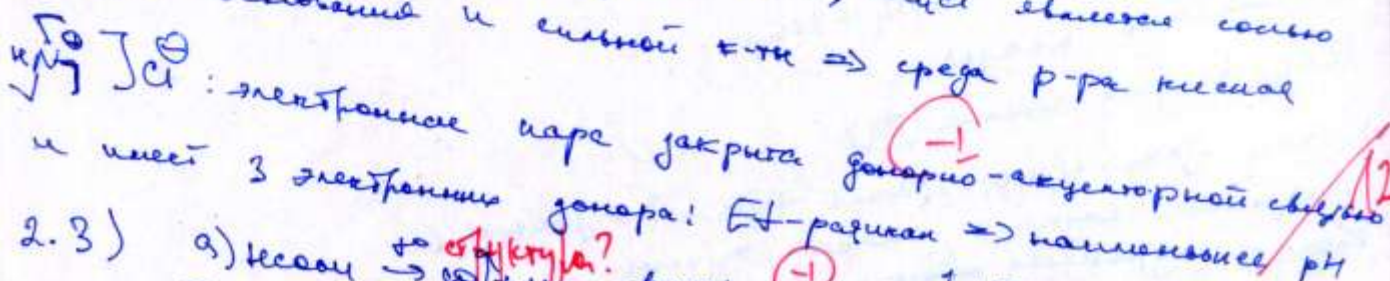 и сильной к-ты => среда р-ра кислая
]Cl⊖ : электронная пара закрыта донорно-акцепторной связью
-1
и имеет 3 электронных донора: Et-радикал => наименьшее pH
2.3) а) HCOOH →
структура?
-1